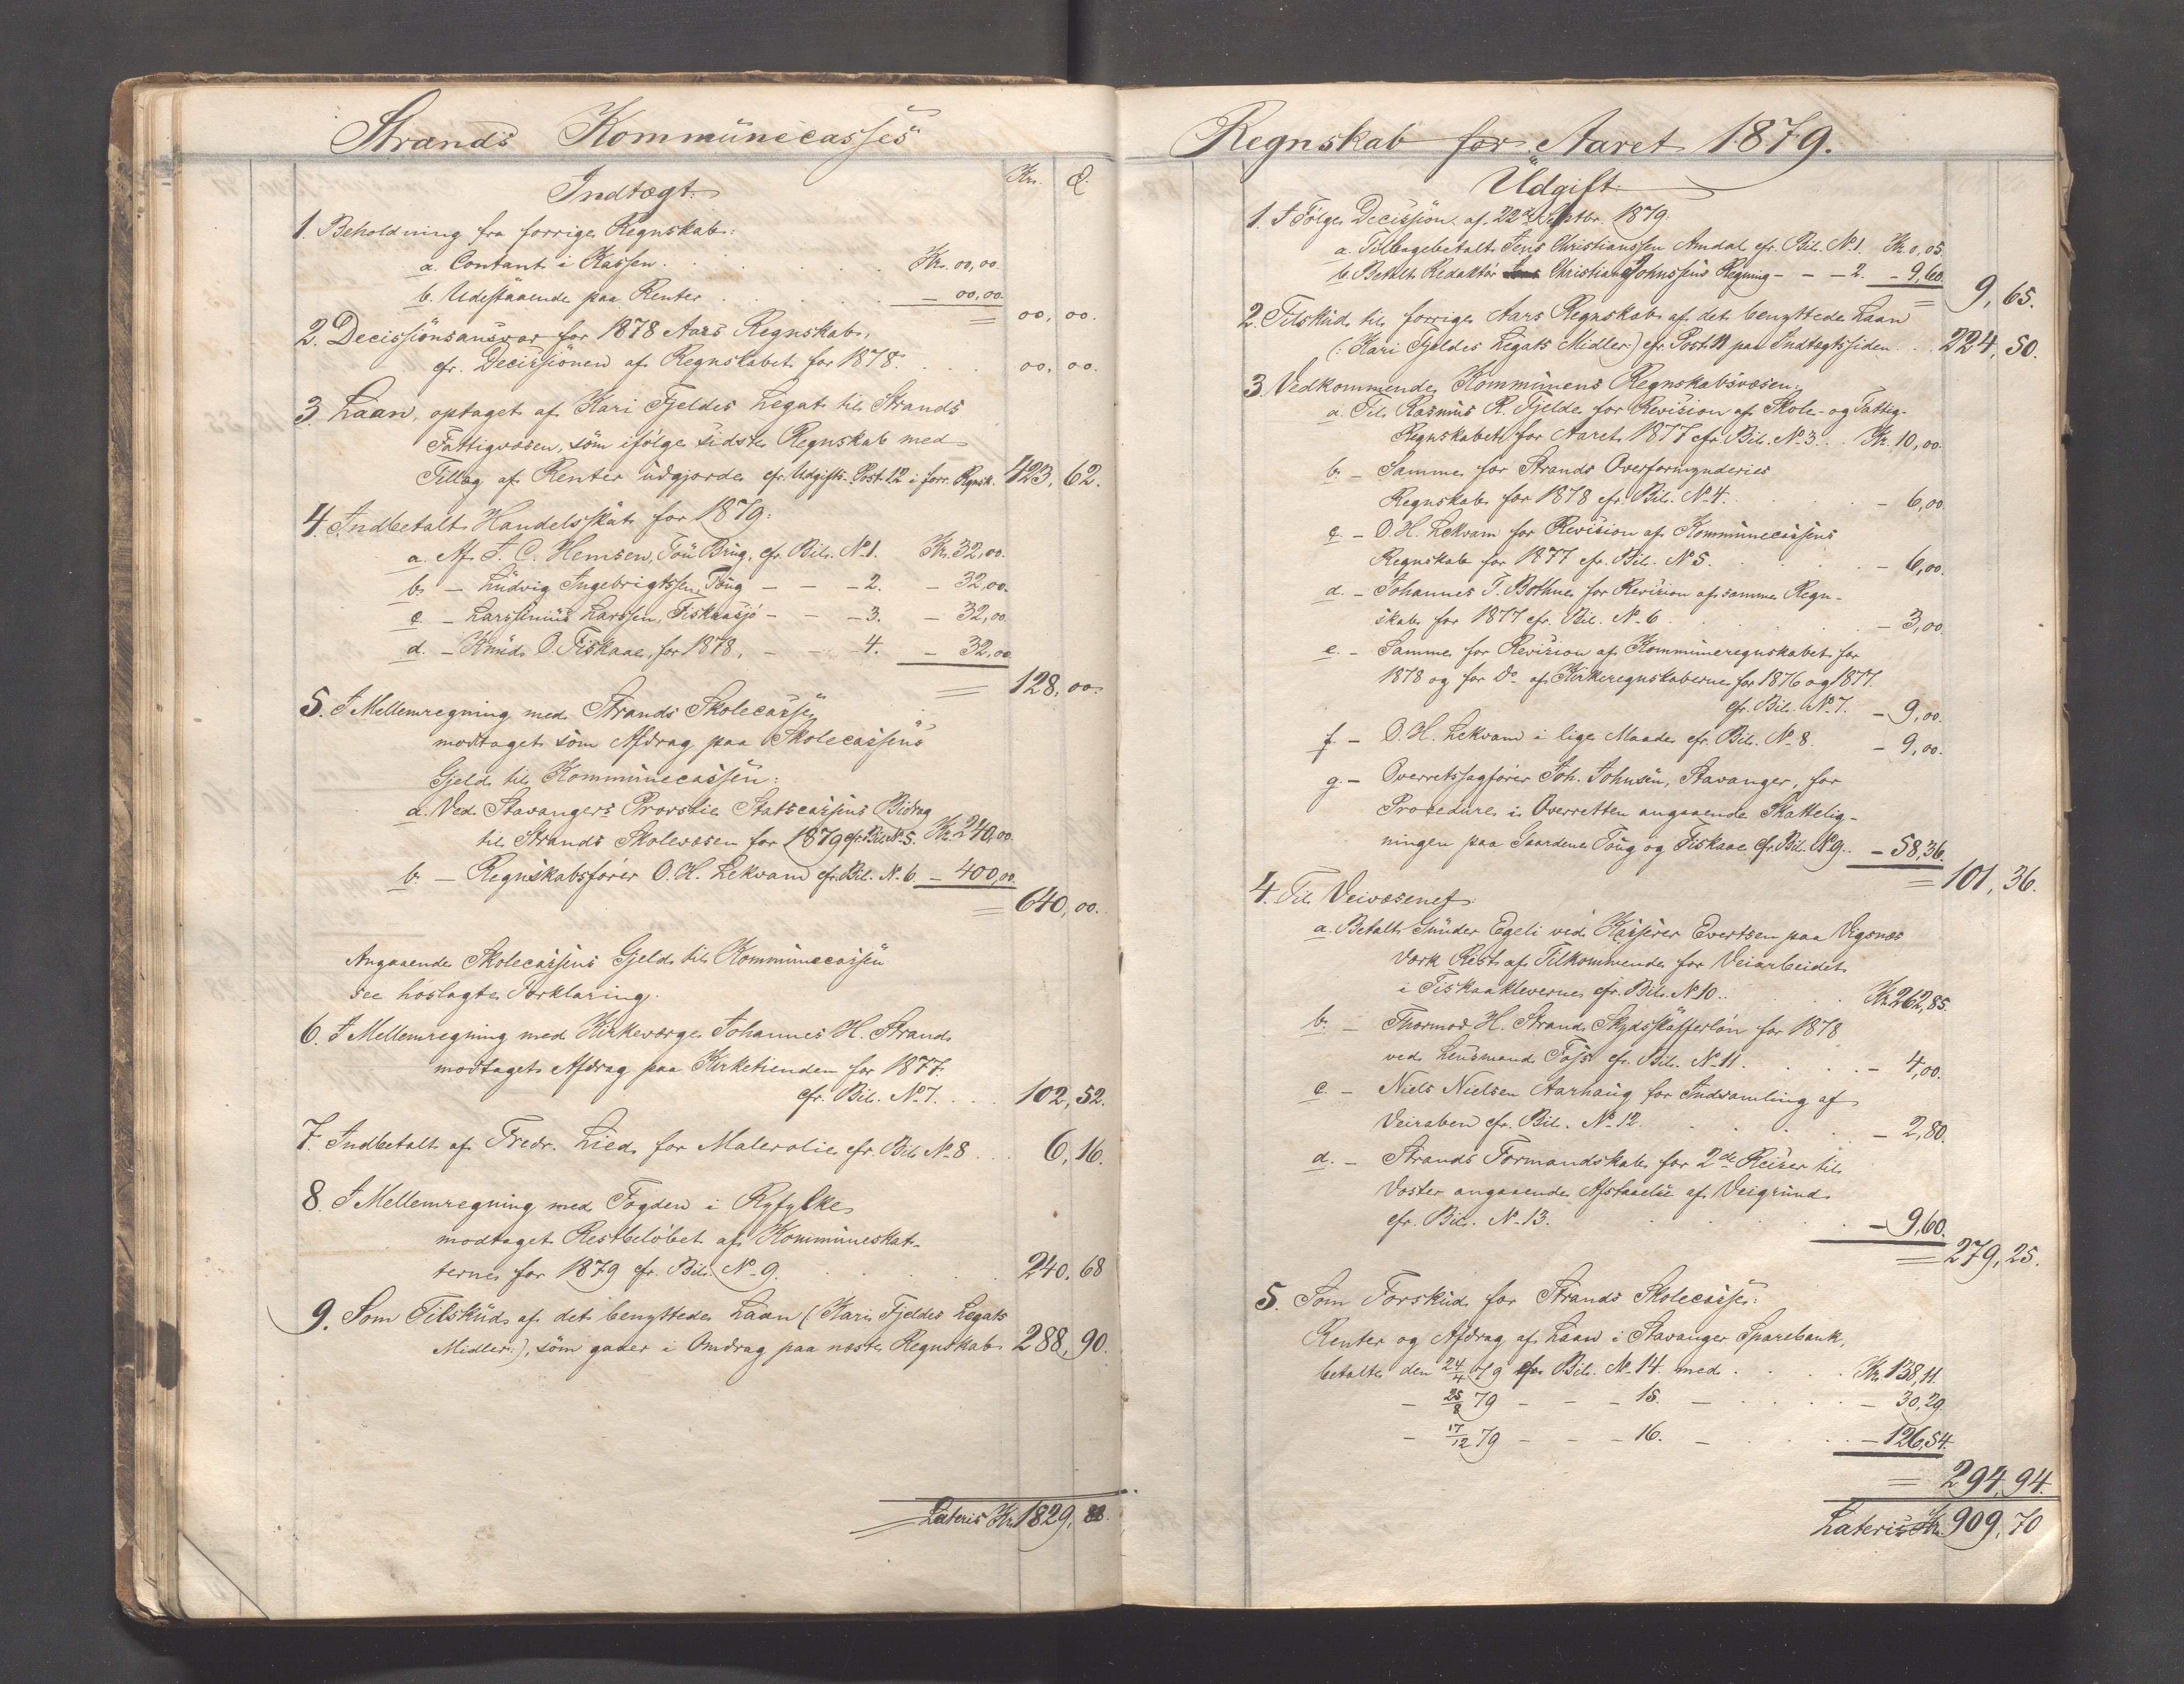 Strands Kommünecasses
Kr. Ø.
Indtægt.
1. Beholdning fra forrige Regnskab:
a. Contant i Kassen. Kr. 00,00.
b. Udestaaende paa Renter – 00,00.
= 00, 00.
2. Decissionsansvar for 1878 Aars Regnskab,
cfr. Decissionen af Regnskabet for 1878. 00, 00.
3. Laan, optaget af Kari Fjeldes Legat til Strands
Fattigvæsen, som ifølge sidste Regnskab med
Tillæg af Renter udgjorde cfr. Udgifts-Post. 12 i forr. Regnsk. 423, 62.
4. Indbetalt Handelsskat for 1879:
a. Af I. C. Hemsen, Toü Brug, cfr. Bil. No 1. Kr. 32,00.
b. – Ludvig Ingebrigtssen Toug – – – 2. – 32,00.
c. – Larssinius Larssen, Fiskaasjø – – – 3. – 32,00.
d. – Knud O. Fiskaae, for 1878, – – – 4. – 32,00
= 128, 00.
5. I Mellemregning med Strands Skolecasse
modtaget som Afdrag paa Skolecassens
Gjeld til Kommunecassen:
a. Ved Stavangers Provstie Statscassens Bidrag
til Strands Skolevæsen for 1879 cfr. Bil. No 5. Kr. 240,00.
b. – Regnskabsfører O. H. Lekvam cfr. Bil. N. 6 – 400,00.
= 640, 00.
Angaaende Skolecassens Gjeld til Kommunecassen
see hoslagte Forklaring.
6. I Mellemregning med Kirkeværge Johannes H. Strand
modtaget Afdrag paa Kirketienden for 1877.
cfr. Bil. No 7. 102, 52.
7. Indbetalt af Fredr. Lied for Malerolie cfr. Bil. No 8 6, 16.
8. I Mellemregning med Fogden i Ryfylke
modtaget Restbeløbet af Kommuneskat-
terne for 1879 cfr. Bil. No 9. 240, 68
9. Som Tilskud af det benyttede Laan (Kari Fjeldes Legats
Midler:), som gaaer i Omdrag paa næste Regnskab 288, 90.
Lateris Kr. 1829, 88.
Regnskab for Aaret 1879.
Udgift.
1. I Følge Decission af 22de Septbr. 1879:
a. Tilbagebetalt Jens Christianssen Amdal cfr. Bil. No 1. Kr. 0,05.
b. Betalt Redaktør Christian Johnssens Regning – – – 2. – 9,60.
= 9, 65.
2. Tilskud til forrige Aars Regnskab af det benyttede Laan
(: Kari Fjeldes Legats Midler:) cfr. Post. 11 paa Indtægtssiden 224, 50.
3. Vedkommende Kommunens Regnskabsvæsen:
a. Til Rasmus R. Fjelde for Revision af Skole- og Fattig-
Regnskabet for Aaret 1877 cfr. Bil. No 3. Kr. 10,00.
b. – Samme for Strands Overformynderies
Regnskab for 1878 cfr. Bil. No 4. – 6,00.
c. – O. H. Lekvam for Revision af Kommunecassens
Regnskab for 1877 cfr. Bil. No 5. – 6,00.
d. – Johannes T. Bothne for Revision af samme Regn-
skab for 1877 cfr. Bil. No 6 – 3,00
e. – Samme for Revision af Kommuneregnskabet for
1878 og for Do af Kirkeregnskaberne for 1876 og 1877.
cfr. Bil. No 7. – 9,00.
f. – O. H. Lekvam i lige Maade cfr. Bil. No 8. – 9,00.
g. – Overretssagfører Joh. Johnsen, Stavanger, for
Procedure i Overretten angaaende Skattelig-
ningen paa Gaardene Toug og Fiskaae cfr. Bil. No 9. – 58,36.
= 101, 36.
4. Til Veivæsenet:
a. Betalt Gunder Egeli ved Kasserer Evertsen paa Vigsnæs
Værk Rest af Tilkommende for Veiarbeidet
i Fiskaakleverne cfr. Bil. No 10. Kr. 262,85.
b. – Thormod H. Strand Skydsskafferløn for 1878
ved Lensmand cfr. Bil. No 11. – 4,00.
c. – Niels Nielsen Aarhaug for Indsamling af
Veiraben cfr. Bil. No 12. – 2,80.
d. – Strands Formandskab for 2de Reiser til
Voster angaaende Afstaaelse af Veigrund
cfr. Bil. No 13. – 9,60.
= 279, 25.
5. Som Forskud for Strands Skolecasse:
Renter og Afdrag af Laan i Stavanger Sparebank,
betalte den 24/4 79 cfr. Bil. No 14 med Kr. 138,11.
– 25/8 79 – – – 15. – – 30,29.
– 17/12 79 – – – 16. – – 126,54.
= 294, 94.
Lateris Kr. 909, 70